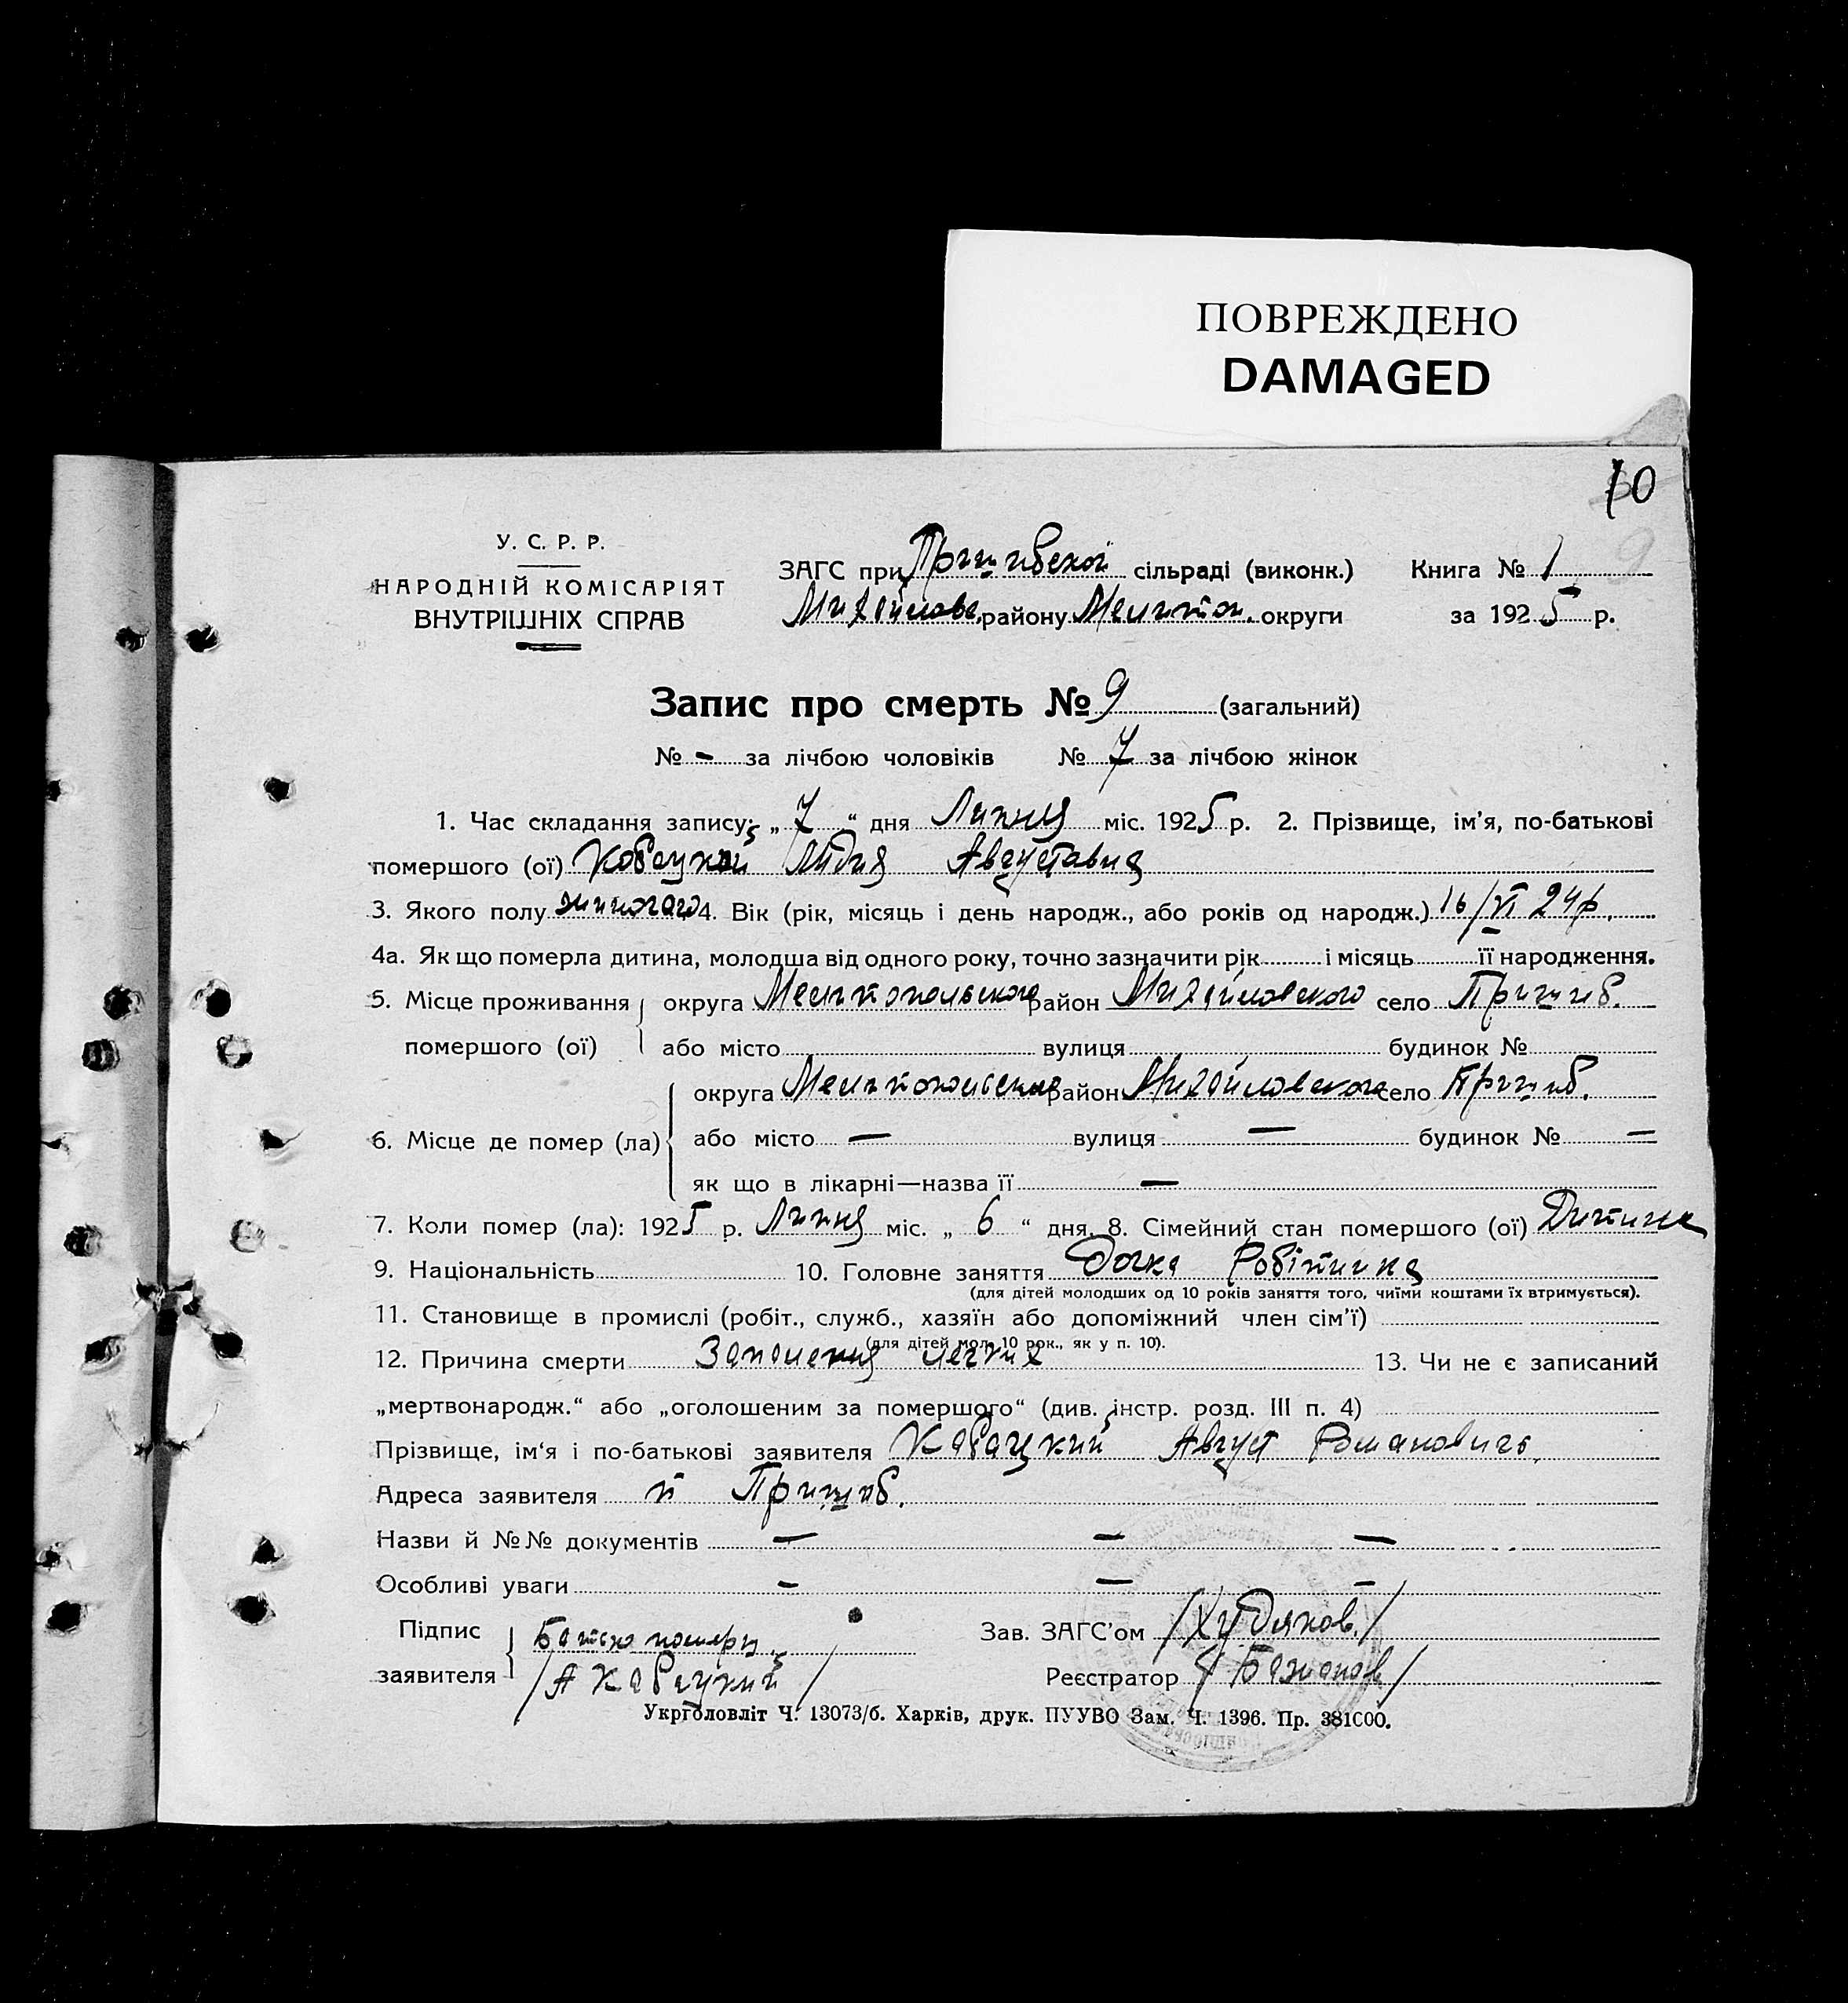 ПОВРЕЖДЕНО
DAMAGED
10
9
У. С. Р. Р.
НАРОДНІЙ КОМІСАРІЯТ
ВНУТРІШНІХ СПРАВ
ЗАГС при Пришибской сільраді (виконк.) Книга № 1
Михайловс. району Мелитоп. округи за 1925 р.
Запис про смерть № 9 (загальний)
№ - за лічбою чоловіків № 7 за лічбою жінок
1. Час складання запису: „ 7 “ дня Липня міс. 1925 р. 2. Прізвище, ім’я, по-батькові
помершого (ої) Лидия Августавна
3. Якого полу 4. Вік (рік, місяць і день народж., або років од народж.) 16/VI 24р.
4а. Як що померла дитина, молодша від одного року, точно зазначити рік і місяць її народження.
5. Місце проживання помершого (ої) округа Мелитопольского район Михайловского село Пришиб.
або місто вулиця будинок №
6. Місце де помер (ла) округа Мелитопольского район Михайловского село Пришиб.
або місто — вулиця — будинок № —
як що в лікарні—назва її —
7. Коли помер (ла): 1925 р. Липня міс. „ 6 “ дня. 8. Сімейний стан помершого (ої) Дитина
9. Національність 10. Головне заняття Дочка Робітника
(для дітей молодших од 10 років заняття того, чиїми коштами їх втримується).
11. Становище в промислі (робіт., служб., хазяїн або допоміжний член сім’ї)
(для дітей мол. 10 рок., як у п. 10).
12. Причина смерти Заполения легких 13. Чи не є записаний
„мертвонародж.“ або „оголошеним за помершого“ (див. інстр. розд. III п. 4)
Прізвище, ім‘я і по-батькові заявителя Кабацкий Август Романовичь
Адреса заявителя Пришиб.
Назви й №№ документів — — —
Особливі уваги - — -
Підпис заявителя Батько
/А Кабацкий/
Зав. ЗАГС’ом /Худяков./
Реєстратор
Укрголовліт Ч. 13073/б. Харків, друк. ПУУВО Зам. Ч. 1396. Пр. 381С00.